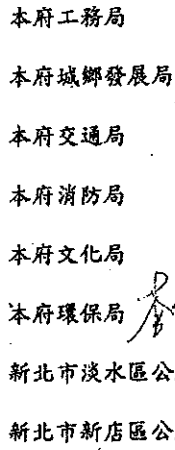 本府工務局
本府城鄉發展局
本府交通局
本府消防局
本府文化局
本府環保局
新北市淡水區公
新北市新店區公